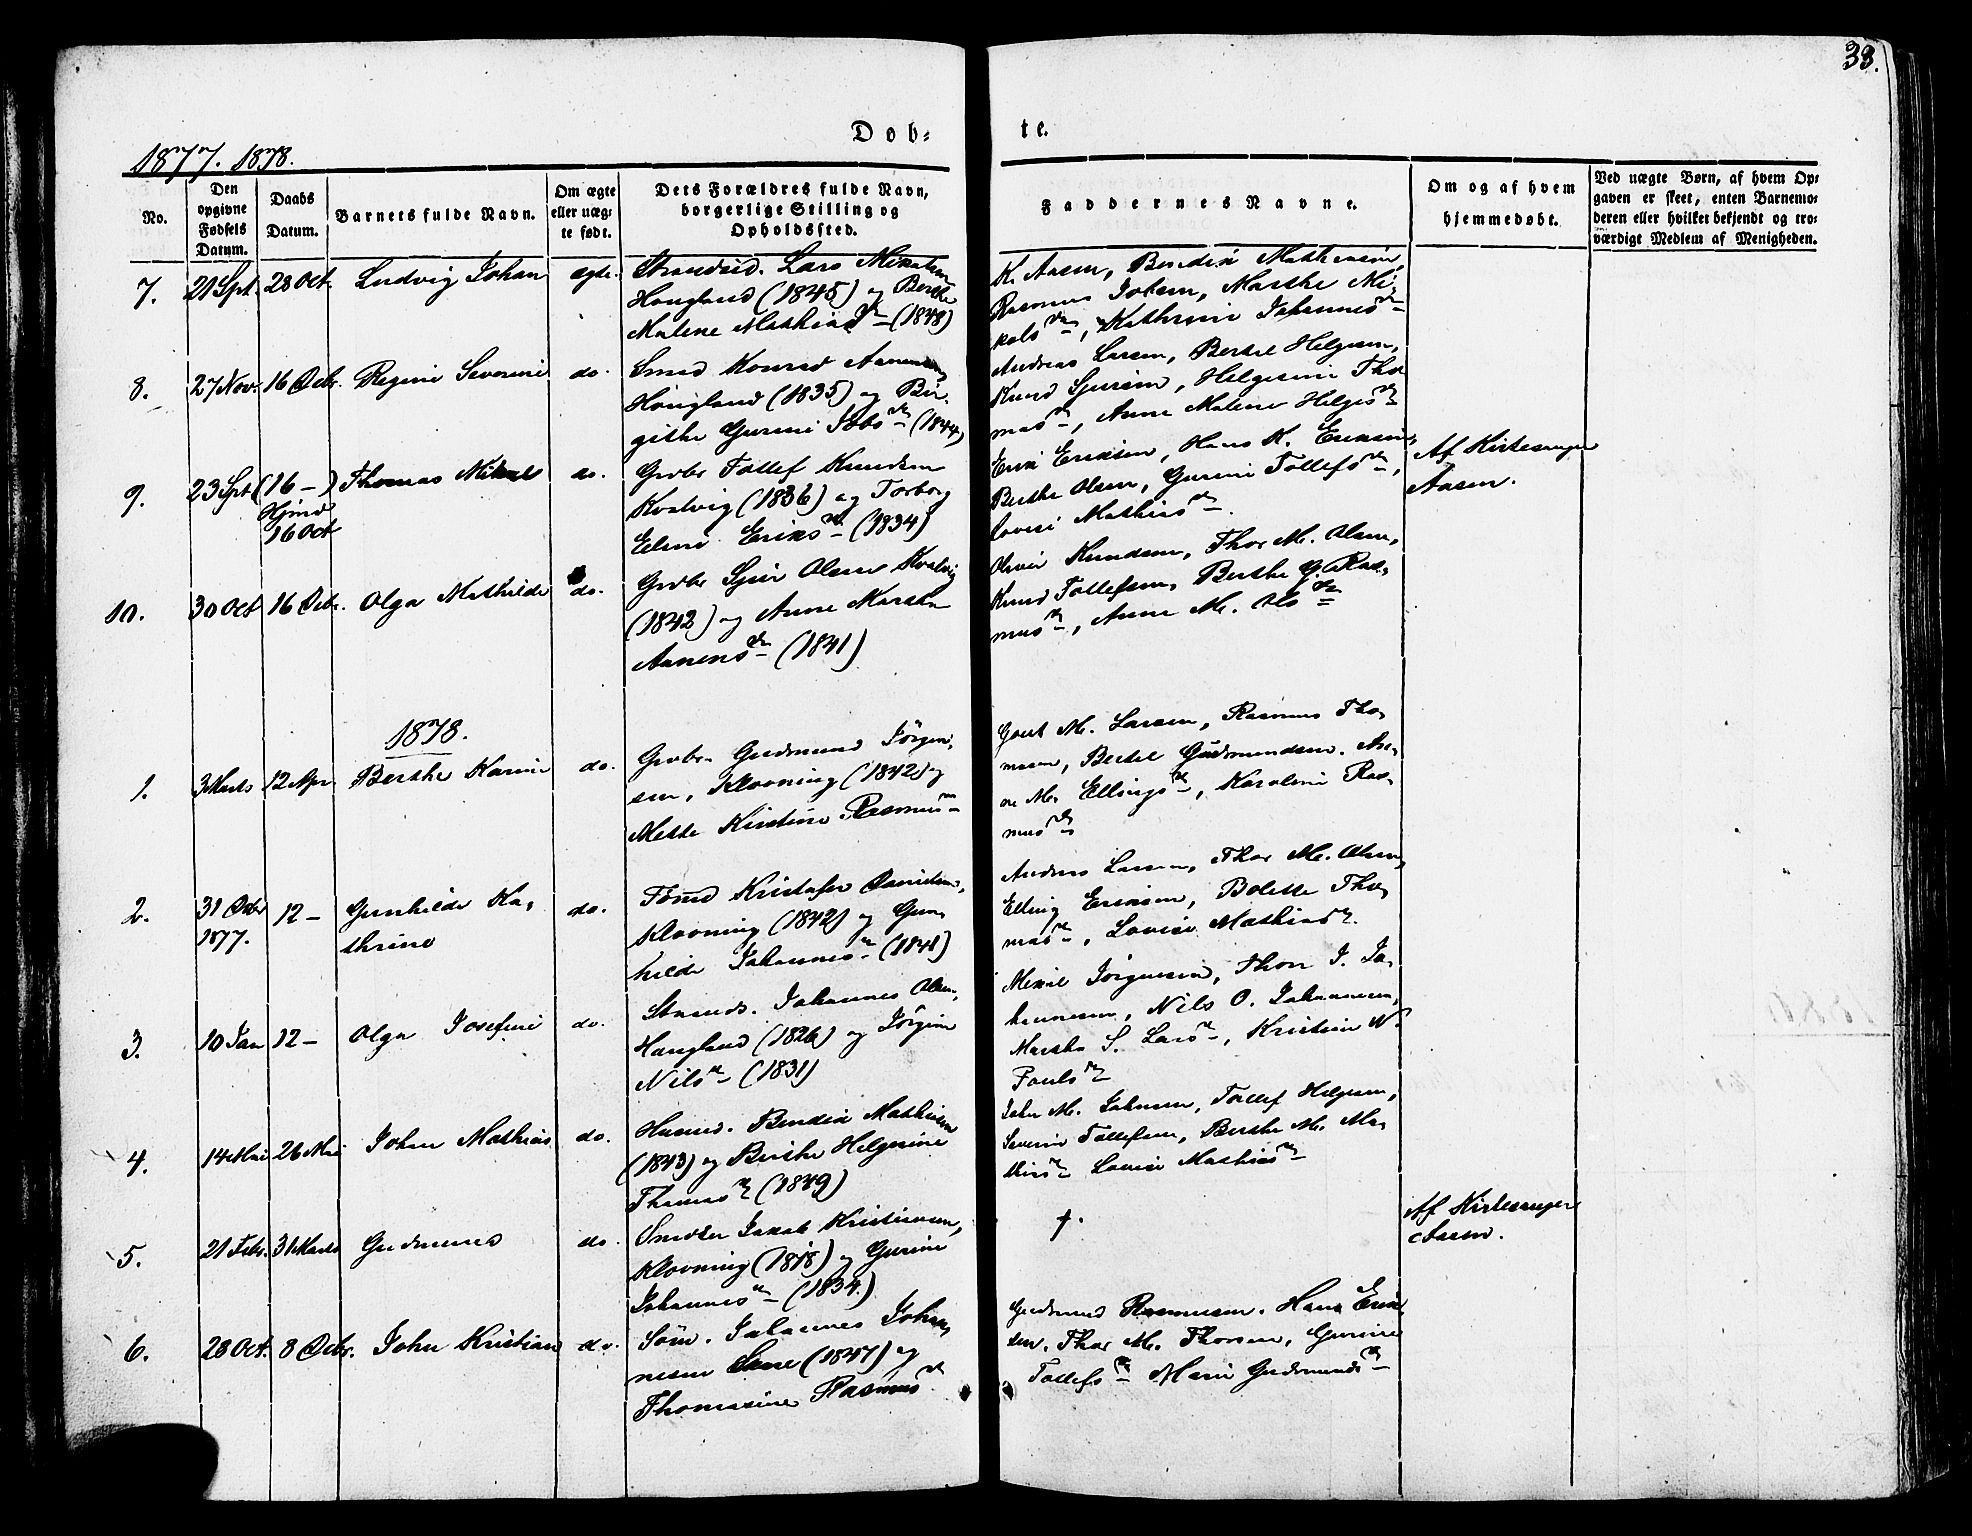 38.
Døb-
te.
1877. 1878.
No.
Den opgivne Fødsels Datum.
Daabs Datum.
Barnets fulde Navn.
Om ægte eller uæg- te født.
Dets Forældres fulde Navn, borgerlige Stilling og Opholdssted.
Faddernes Navne.
Om og af hvem hjemmedøbt.
Ved uægte Børn, af hvem Op- gaven er skeet, enten Barnemo- deren eller hvilket bekjendt og tro- værdigt Medlem af Menigheden.
7. 21 Spt. 28 Oct. Ludvig Johan ægte. Strandsid. Lars Mikalsen
Hougland (1845) og Berthe
Malene Mathiasdr (1848)
K. Aasen, Bendix Mathiesen,
Rasmus Johsen, Marthe Mi-
kalsdr, Kathrine Johannesdr
8. 27 Nov. 16 Decbr. Regine Severine do. Smed Konrad Aanensen
Hougland (1835) og Bir-
githe Gurine Jobsdr (1844)
Andreas Larsen, Bertel Helgesen,
Knud Sjursen, Helgesine Tho-
masdr, Anne Malene Helgesdr
9. 23 Spt. (16 -) Thomas Mikal do. Grbr. Tollef Knudsen
Hjmd 16 Oct
Kvalvig (1836) og Torborg
Eline Eriksdr (1834)
Erik Eriksen, Hans K. Eriksen,
Berthe Olsen, Gurine Tollefsdr,
Lovise Mathiasdr.
Af Kirkesanger
Aasen.
10. 30 Oct 16 Decbr. Olga Mathilde do. Grbr. Sjur Olsen Kvalvig
(1842) og Anne Martha
Aanensdr (1841)
Oliver Knudsen, Thor M. Olsen,
Knud Tollefsen, Berthe G. Ras-
musdr, Anne M. Olsdr
1878.
1. 3 Marts 12 Apr Berthe Karine do. Grbr. Gudmund Jörgen-
sen, Klovning (1842) og
Mette Kirstine Rasmusdr
Gout M. Larsen, Rasmus Tho-
masen, Bertel Gudmundsen. An-
ne M. Ellingsdr, Karoline Ras-
musdr
2. 31 Decbr 1877. 12 - Gunhilde Ka-
thrine do. Tømd Kristofer Danielsen,
Klovning (1842) og Gun-
hilde Johannesdr (1841)
Anders Larsen, Thor M. Olsen,
Elling Eriksen, Bolette Tho-
masdr, Lovise Mathiasdr.
3. 10 Jan 12 - Olga Josefine do. Strands. Johannes Olsen,
Haugland (1826) og Jörgine
Nilsdr (1831)
Mikal Jörgensen, Thor J. Jo-
hannesen, Nils O. Johannesen,
Martha S. Larsdr, Kristine N.
Paulsdr
4. 14 Mai 26 Mai John Mathias do. Husmd. Bendix Mathiesen
(1843) og Berthe Helgesine
Thomasdr (1849)
John M. Johnsen, Tollef Helgesen,
Severin Tollefsen, Berthe M. Ma-
thiasdr Lovise Mathiasdr
5. 21 Febr. 31 Marts Gudmund do. Smeder Jakob Kristiansen,
Klovning (1818) og Gurine
Johannesdr (1834)
†.
Af Kirkesanger
Aasen.
6. 28 Oct. 8 Decbr. John Kristian do. Søm. Johannes Johan-
nesen (1847) og
Thomasine Rasmusdr
Gudmund Rasmussen. Hans Erik-
sen. Thor M. Thorsen, Gurine
Tollefsdr Marie Gudmundsdr